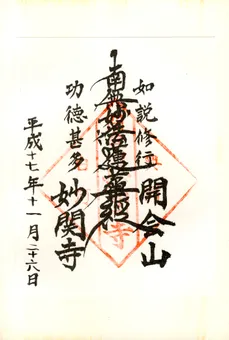 如説修行
開会山
南無妙法蓮華経
功徳甚多
妙関寺
平成十七年十一月二十六日